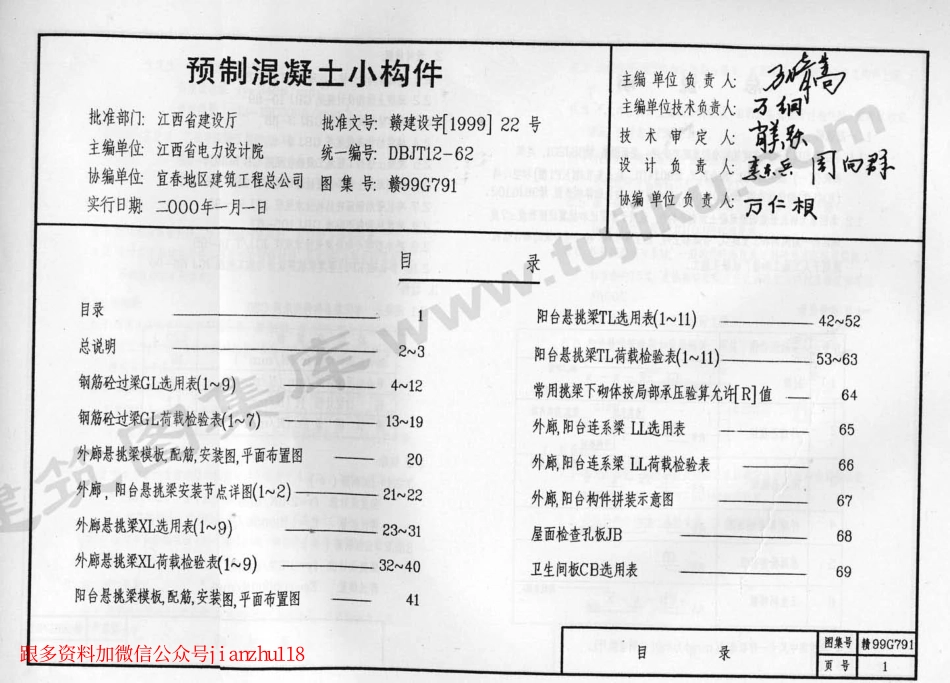 预制混凝土小构件
批准部门: 江西省建设厅
批准文号: 赣建设字[1999] 22 号
主编单位: 江西省电力设计院
统一编号: DBJT12-62
协编单位: 宜春地区建筑工程总公司
图 集 号: 赣99G791
实行日期: 二000年一月一日
主编单位负责人:
主编单位技术负责人:
技术审定人:
设计负责人: 周向群
协编单位负责人: 万仁根
目 录
目录 1
总说明 2~3
钢筋砼过梁GL选用表(1~9) 4~12
钢筋砼过梁GL荷载检验表(1~7) 13~19
外廊悬挑梁模板,配筋,安装图,平面布置图 20
外廊,阳台悬挑梁安装节点详图(1~2) 21~22
外廊悬挑梁XL选用表(1~9) 23~31
外廊悬挑梁XL荷载检验表(1~9) 32~40
阳台悬挑梁模板,配筋,安装图,平面布置图 41
阳台悬挑梁TL选用表(1~11) 42~52
阳台悬挑梁TL荷载检验表(1~11) 53~63
常用挑梁下砌体按局部承压验算允许[R]值 64
外廊,阳台连系梁 LL选用表 65
外廊,阳台连系梁 LL荷载检验表 66
外廊,阳台构件拼装示意图 67
屋面检查孔板JB 68
卫生间板CB选用表 69
目 录
图集号 赣99G791
页 号 1
建筑图集库 www.tujiku.com
跟多资料加微信公众号jianzhu118